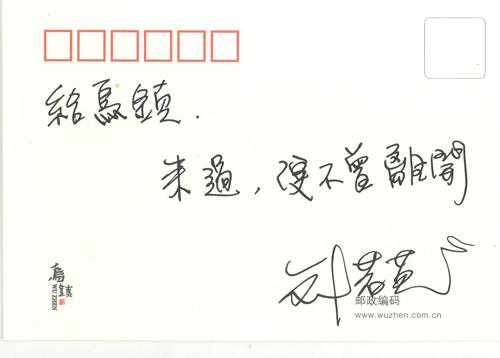 給烏鎮.
来過，便不曾離開
刘若英
烏鎮
WUZHEN
邮政编码
www.wuzhen.com.cn